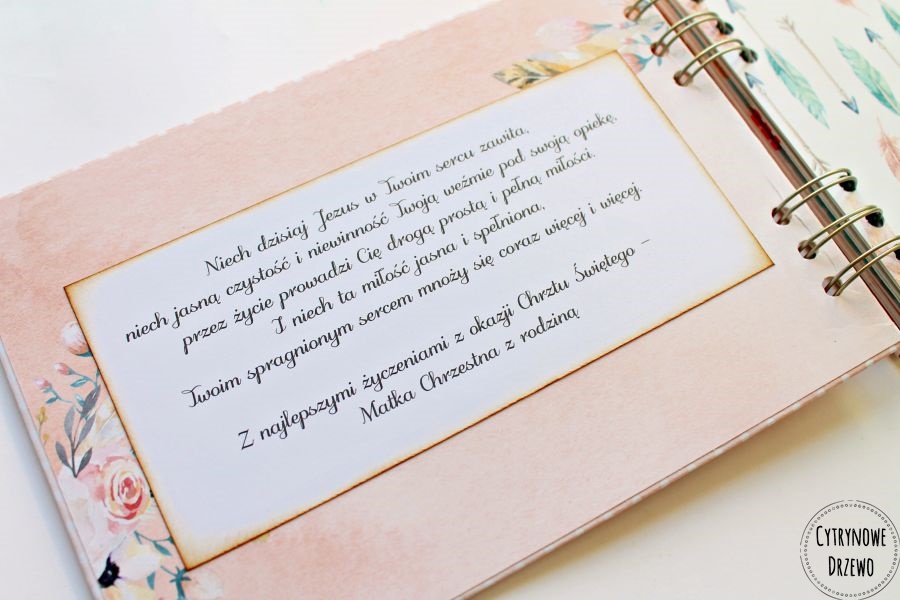 Niech dzisiaj Jezus w Twoim sercu zawita,
niech jasną czystość i niewinność Twoją weźmie pod swoją opiekę,
przez życie prowadzi Cię drogą prostą i pełną miłości.
I niech ta miłość jasna i spełniona,
Twoim spragnionym sercem mnoży się coraz więcej i więcej.
Z najlepszymi życzeniami z okazji Chrztu Świętego –
Matka Chrzestna z rodziną
CYTRYNOWE
DRZEWO